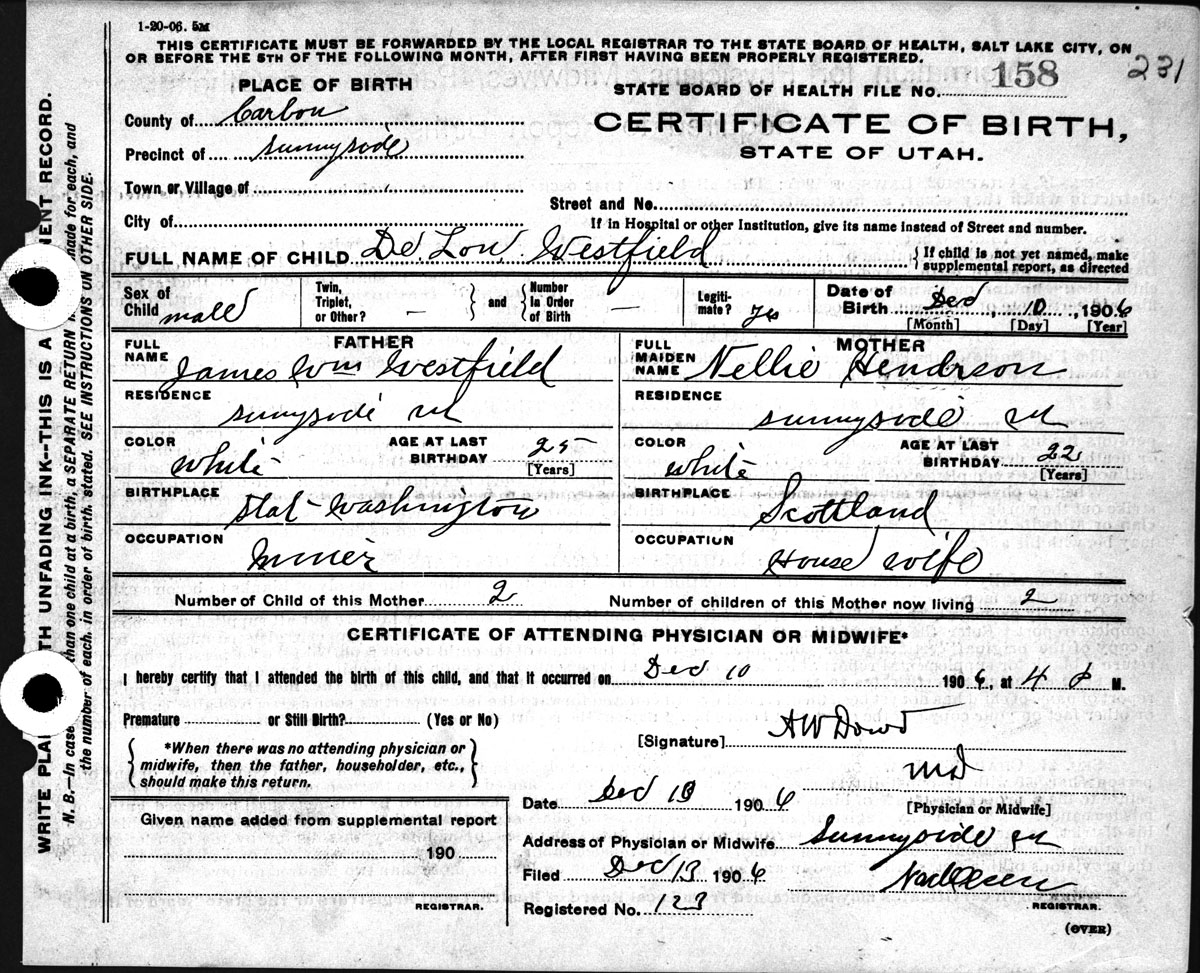 1-20-06. 5M
THIS CERTIFICATE MUST BE FORWARDED BY THE LOCAL REGISTRAR TO THE STATE BOARD OF HEALTH, SALT LAKE CITY, ON
OR BEFORE THE 5TH OF THE FOLLOWING MONTH, AFTER FIRST HAVING BEEN PROPERLY REGISTERED.
231
PLACE OF BIRTH
STATE BOARD OF HEALTH FILE NO. 158
County of Carbon
CERTIFICATE OF BIRTH,
Precinct of Sunnyside
STATE OF UTAH.
Town or Village of
Street and No.
City of
If in Hospital or other Institution, give its name instead of Street and number.
FULL NAME OF CHILD De Lou Westfield { If child is not yet named, make supplemental report, as directed
Sex of Child male Twin, Triplet, or Other? — } and { Number in Order of Birth — Legitimate? yes Date of Birth Dec, 10, 1906
[Month] [Day] [Year]
FATHER MOTHER
FULL NAME James Wm Westfield FULL MAIDEN NAME Nellie Hendrson
RESIDENCE RESIDENCE
Sunnyside Ut Sunnyside Ut
COLOR White AGE AT LAST BIRTHDAY 25 [Years] COLOR White AGE AT LAST BIRTHDAY 22 [Years]
BIRTHPLACE Stat Washington BIRTHPLACE Scottland
OCCUPATION Miner OCCUPATION House Wife
Number of Child of this Mother 2 Number of children of this Mother now living 2
CERTIFICATE OF ATTENDING PHYSICIAN OR MIDWIFE*
I hereby certify that I attended the birth of this child, and that it occurred on Dec 10 1906, at 4 P M.
Premature or Still Birth? (Yes or No)
[Signature] A W Dowd
{ *When there was no attending physician or midwife, then the father, householder, etc., should make this return. }
MD
[Physician or Midwife]
Date Dec 13 1906
Given name added from supplemental report
Address of Physician or Midwife Sunnyside Ut
190
Filed Dec 13 1906
REGISTRAR.
REGISTRAR.
Registered No. 123
(OVER)
WRITE PLAI TH UNFADING INK--THIS IS A NENT RECORD.
N. B.—In case than one child at a birth, a SEPARATE RETURN made for each, and
the number of each, in order of birth, stated. SEE INSTRUCTIONS ON OTHER SIDE.